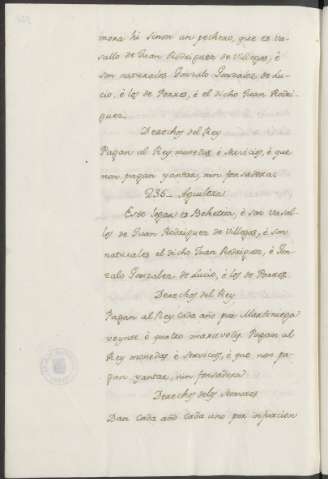 mora hi sinon un pechero, que es va-
sallo de Juan Rodriguez de Villegas, è
son naturales Gonzalo Gonzalez de Lu-
cio, è los de Porres, è el dicho Juan Rodri-
guez.
Derechos del Rey
Pagan al Rey monedas è servicios, è que
non pagan yantar, nin fonsadera.
236 Aguilera
Este logar es Behetria, è son vasal-
los de Juan Rodriguez de Villegas, è son
naturales el dicho Juan Rodriguez, è Gon-
zalo Gonzalez de Lucio, è los de Porres.
Derechos del Rey
Pagan al Rey cada año por Martiniega
veynte è quatro maravedis. Pagan al
Rey monedas è servicios, è que non pa-
gan yantar, nin fonsadera.
Derechos delos Señores
Dan cada año cada uno por infurcion